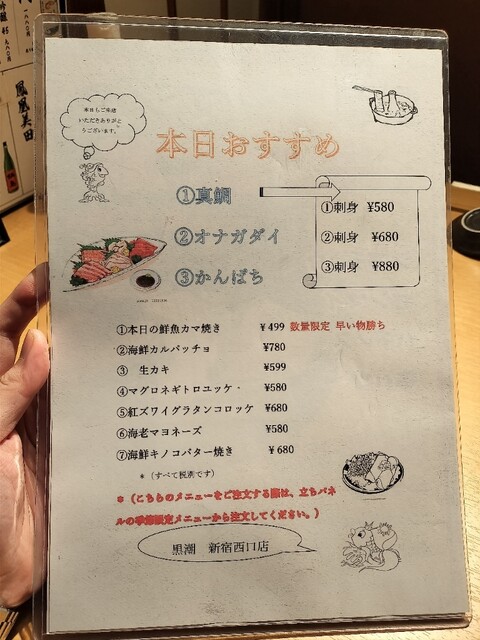 鳳凰美田
本日もご来店
いただきありがと
うございます。
本日おすすめ
①真鯛
②オナガダイ
③かんぱち
①刺身 ¥580
②刺身 ¥680
③刺身 ¥880
①本日の鮮魚カマ焼き ¥499 数量限定 早い物勝ち
②海鮮カルパッチョ ¥780
③ 生カキ ¥599
④マグロネギトロユッケ・ ¥580
⑤紅ズワイグラタンコロッケ ¥680
⑥海老マヨネーズ ¥580
⑦海鮮キノコバター焼き ¥680
*(すべて税別です)
*(こちらのメニューをご注文する際は、立ちパネ
ルの季節限定メニューから注文してください。)
黒潮 新宿西口店